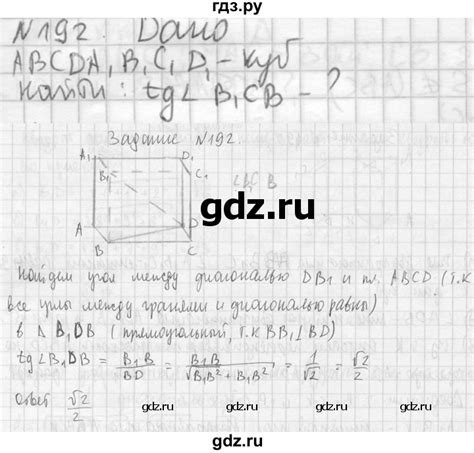 гдз.ру
N192. Дано
ABCDA₁B₁C₁D₁ - куб
найти: tg∠B₁CB - ?
Задание N192
A₁ D₁
B₁ C₁
B
gdz.ru
A D
B C
Найдем угол между диагональю DB₁ и пл. ABCD (т.к
все углы между гранями и диагональю равны)
в △ B₁DB (прямоугольный, т.к BB₁⊥BD)
tg∠B₁DB = B₁B/BD = B₁B/√(B₁B² + B₁B²) = 1/√2 = √2/2
Ответ √2/2
gdz.ru gdz.ru gdz.ru